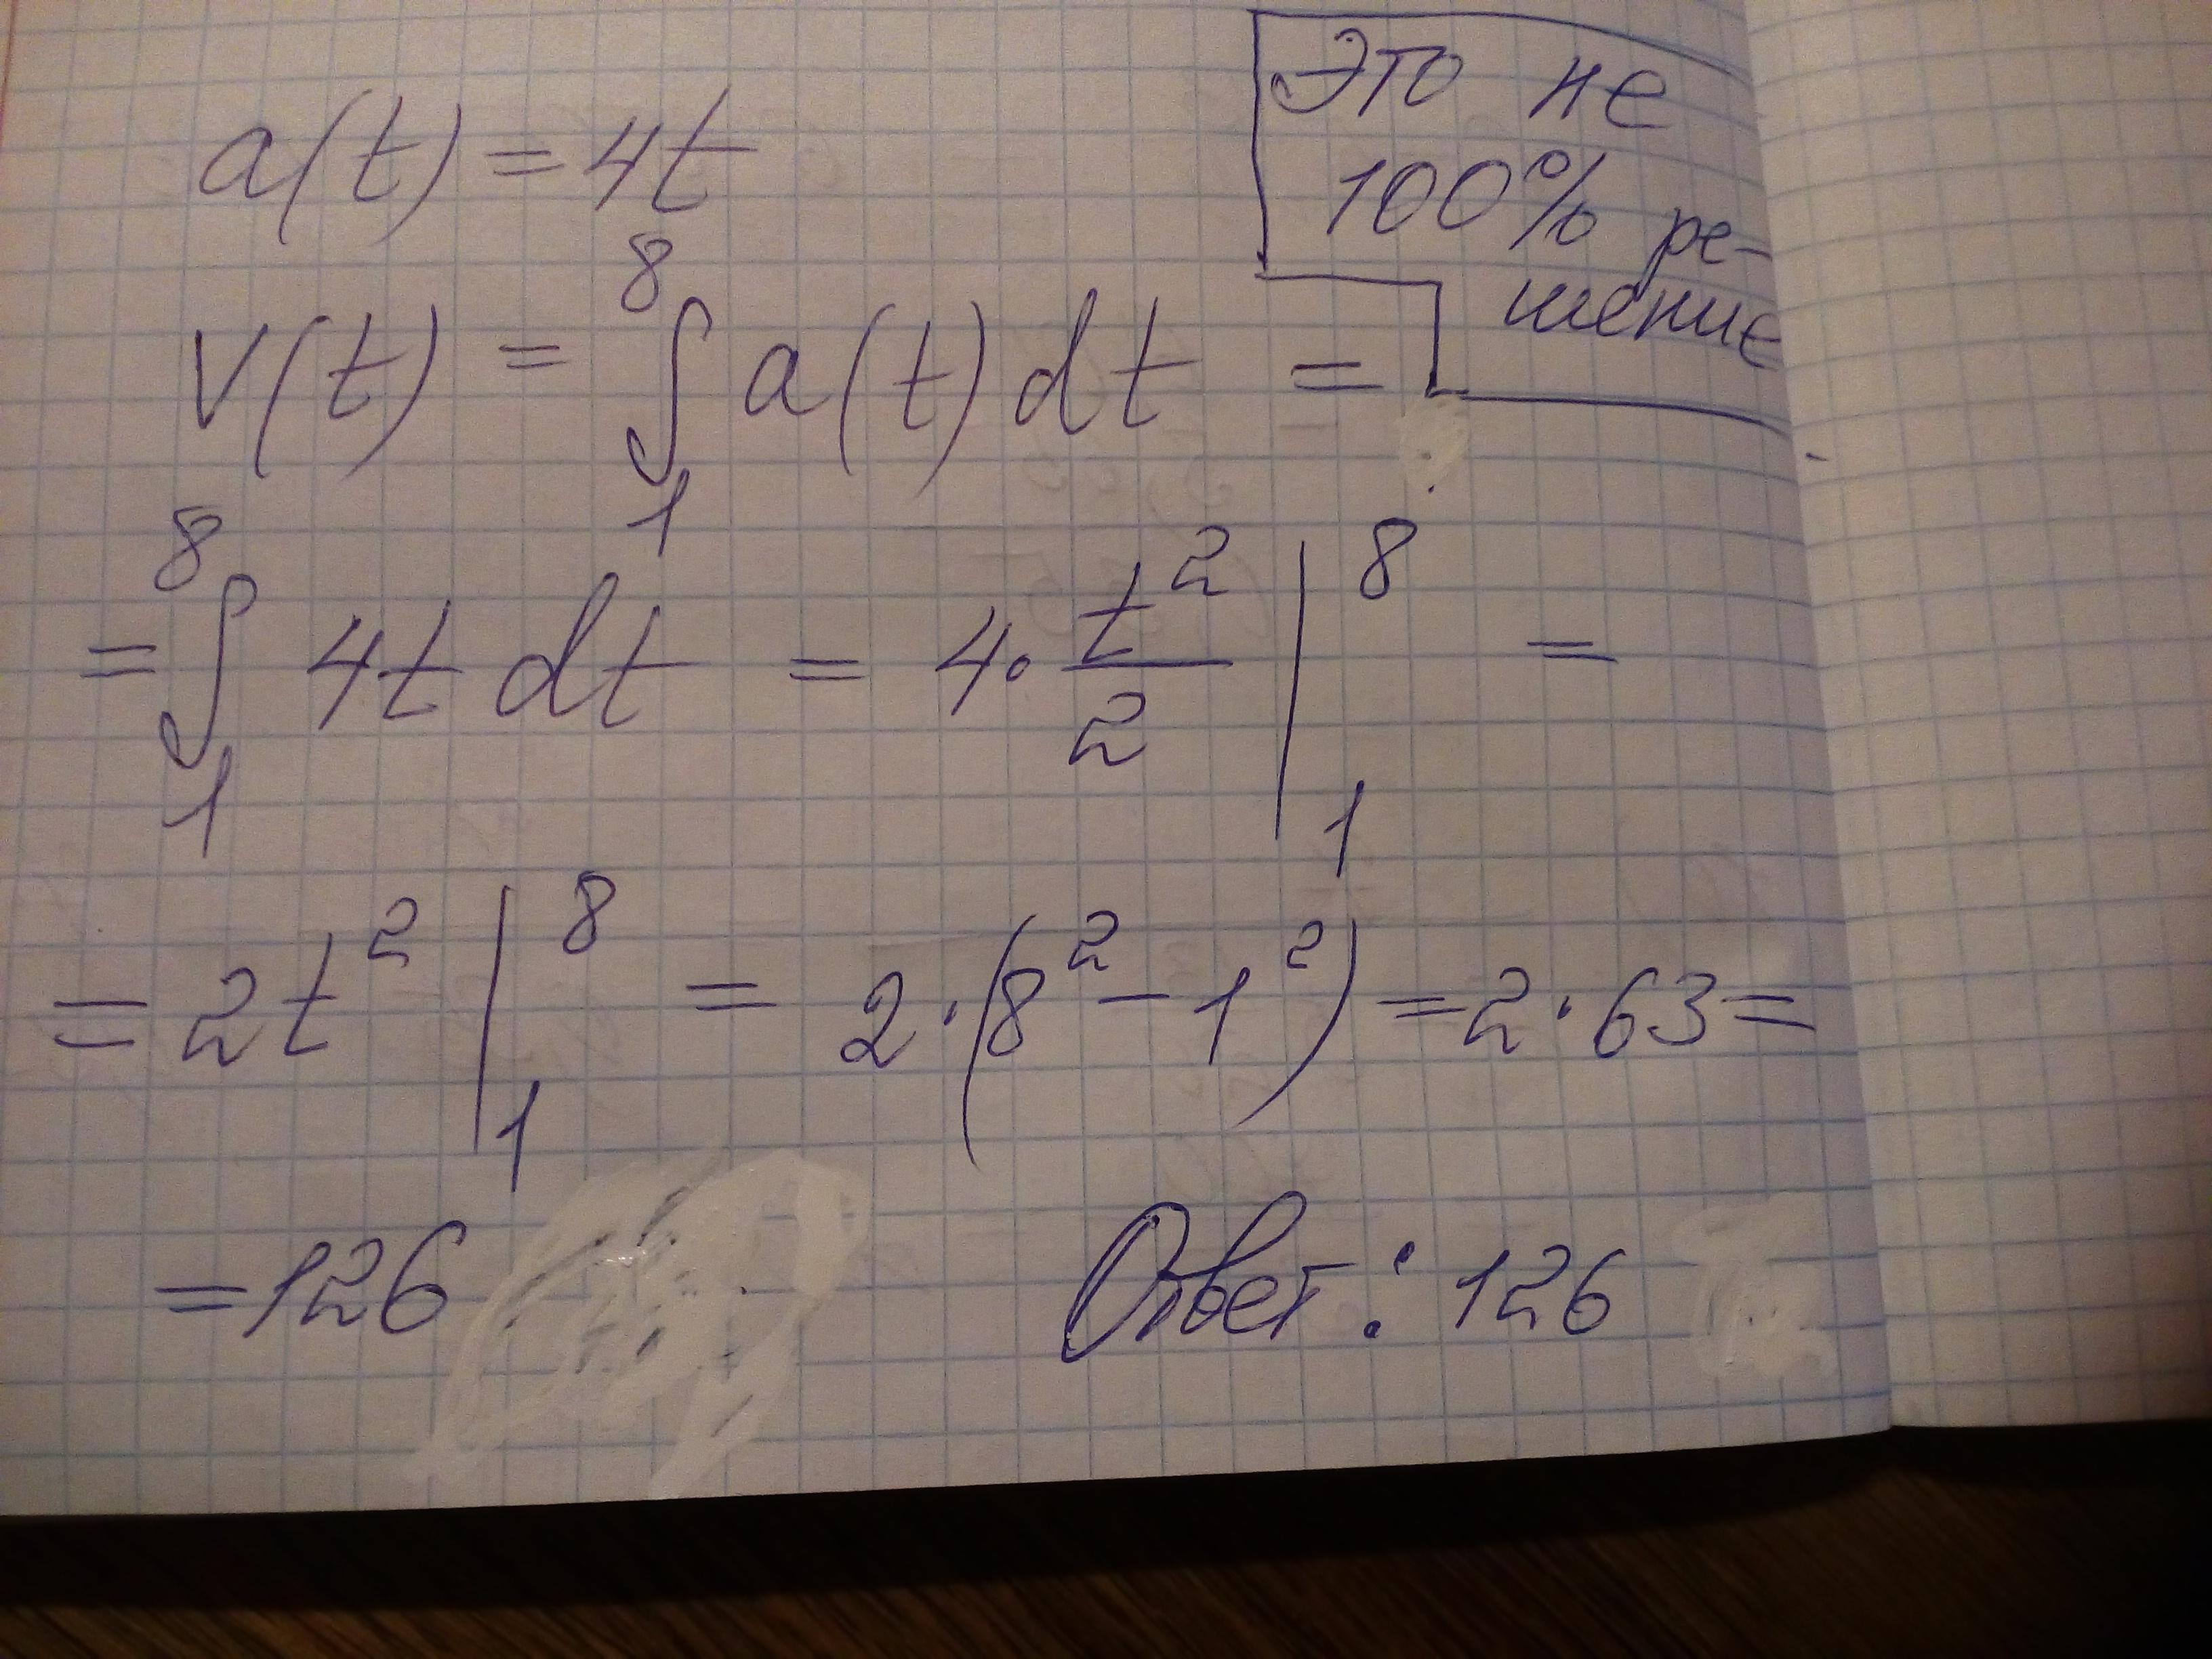 a(t) = 4t
Это не
100% ре-
шение
v(t) = ∫₁⁸ a(t) dt =
= ∫₁⁸ 4t dt = 4 · t²/2 |₁⁸ =
= 2t² |₁⁸ = 2 · (8² − 1²) = 2 · 63 =
= 126 Ответ: 126